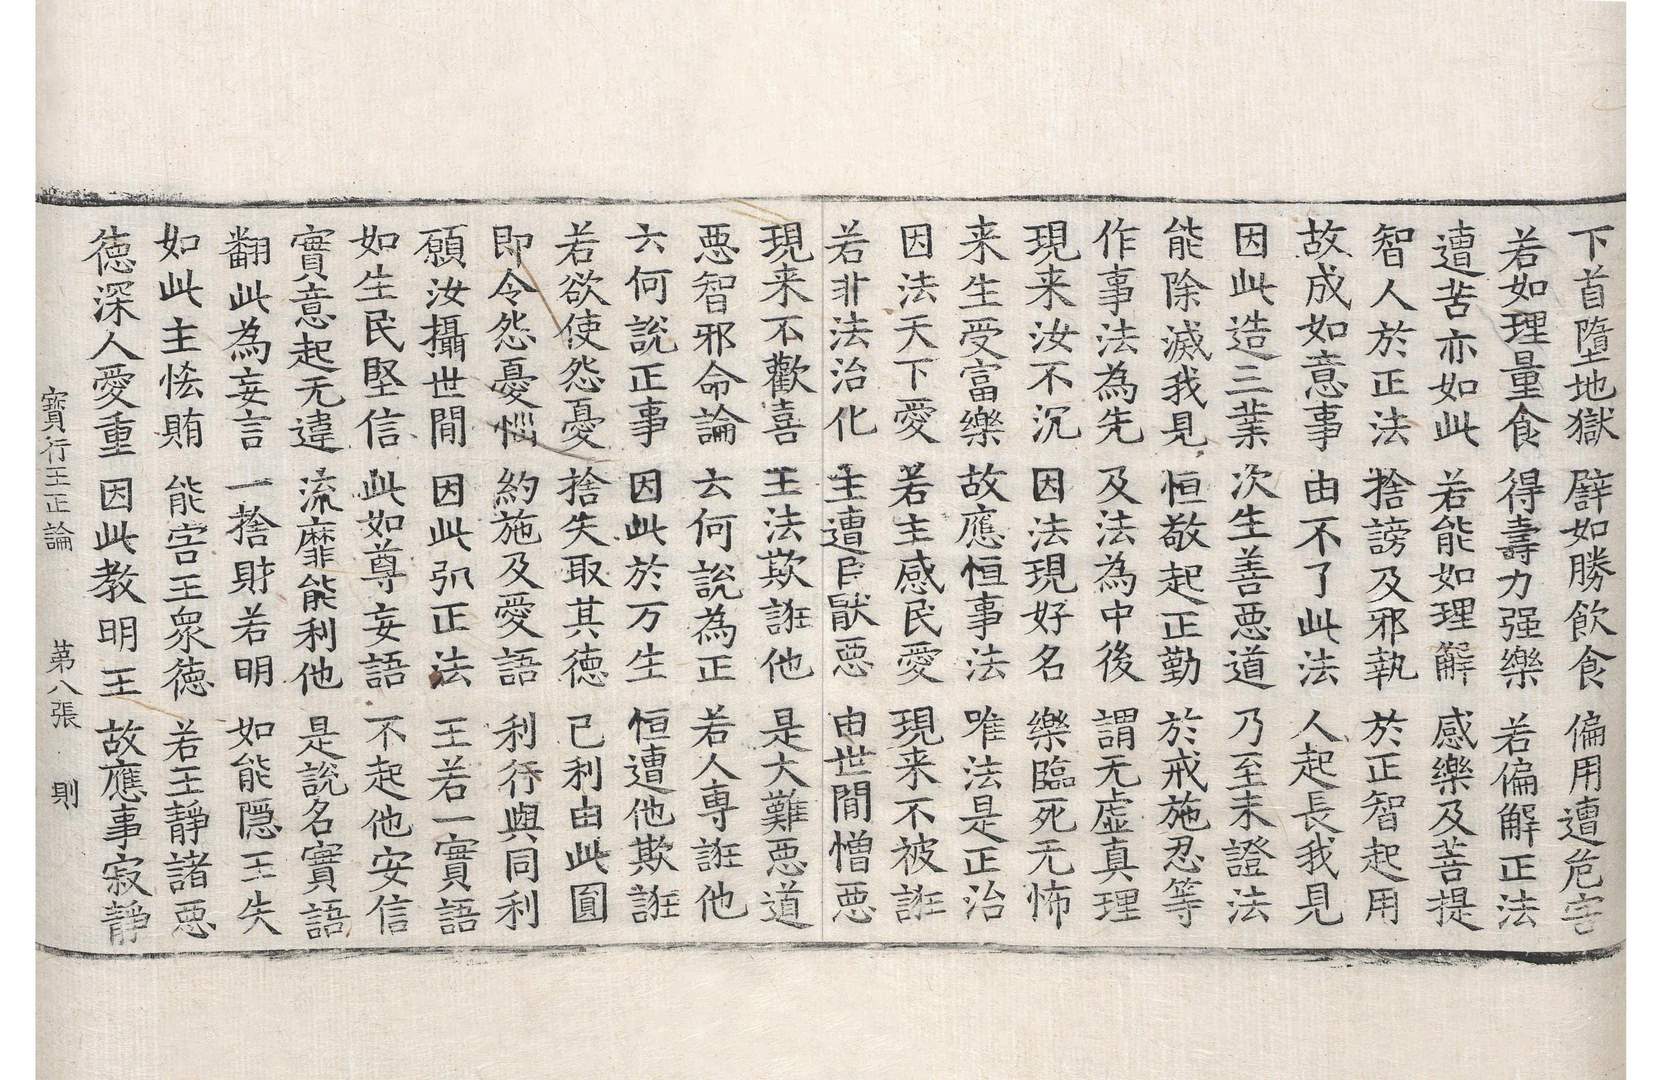 下首墮地獄 譬如勝飲食 偏用遭危害
若如理量食 得壽力强樂 若偏解正法
遭苦亦如此 若能如理解 感樂及菩提
智人於正法 捨謗及邪執 於正智起用
故成如意事 由不了此法 人起長我見
因此造三業 次生善惡道 乃至未證法
能除滅我見 恒敬起正勤 於戒施忍等
作事法為先 及法為中後 謂无虚真理
現来汝不沉 因法現好名 樂臨死无怖
来生受富樂 故應恒事法 唯法是正治
因法天下愛 若主感民愛 現来不被誑
若非法治化 主遭臣猒惡 由世間憎惡
現来不歡喜 王法欺誑他 是大難惡道
惡智邪命論 云何說為正 若人専誑他
云何說正事 因此於万生 恒遭他欺誑
若欲使怨憂 捨失取其德 已利由此圓
即令怨憂惱 約施及愛語 利行與同利
願汝攝世間 因此弘正法 王若一實語
如生民堅信 此如尊妄語 不起他安信
實意起无違 流靡能利他 是說名實語
翻此為妄言 一捨財若明 如能隠王失
如此主恡賄 能害王衆德 若王靜諸惡
德深人愛重 因此教明王 故應事寂靜
寶行王正論 第八張 則